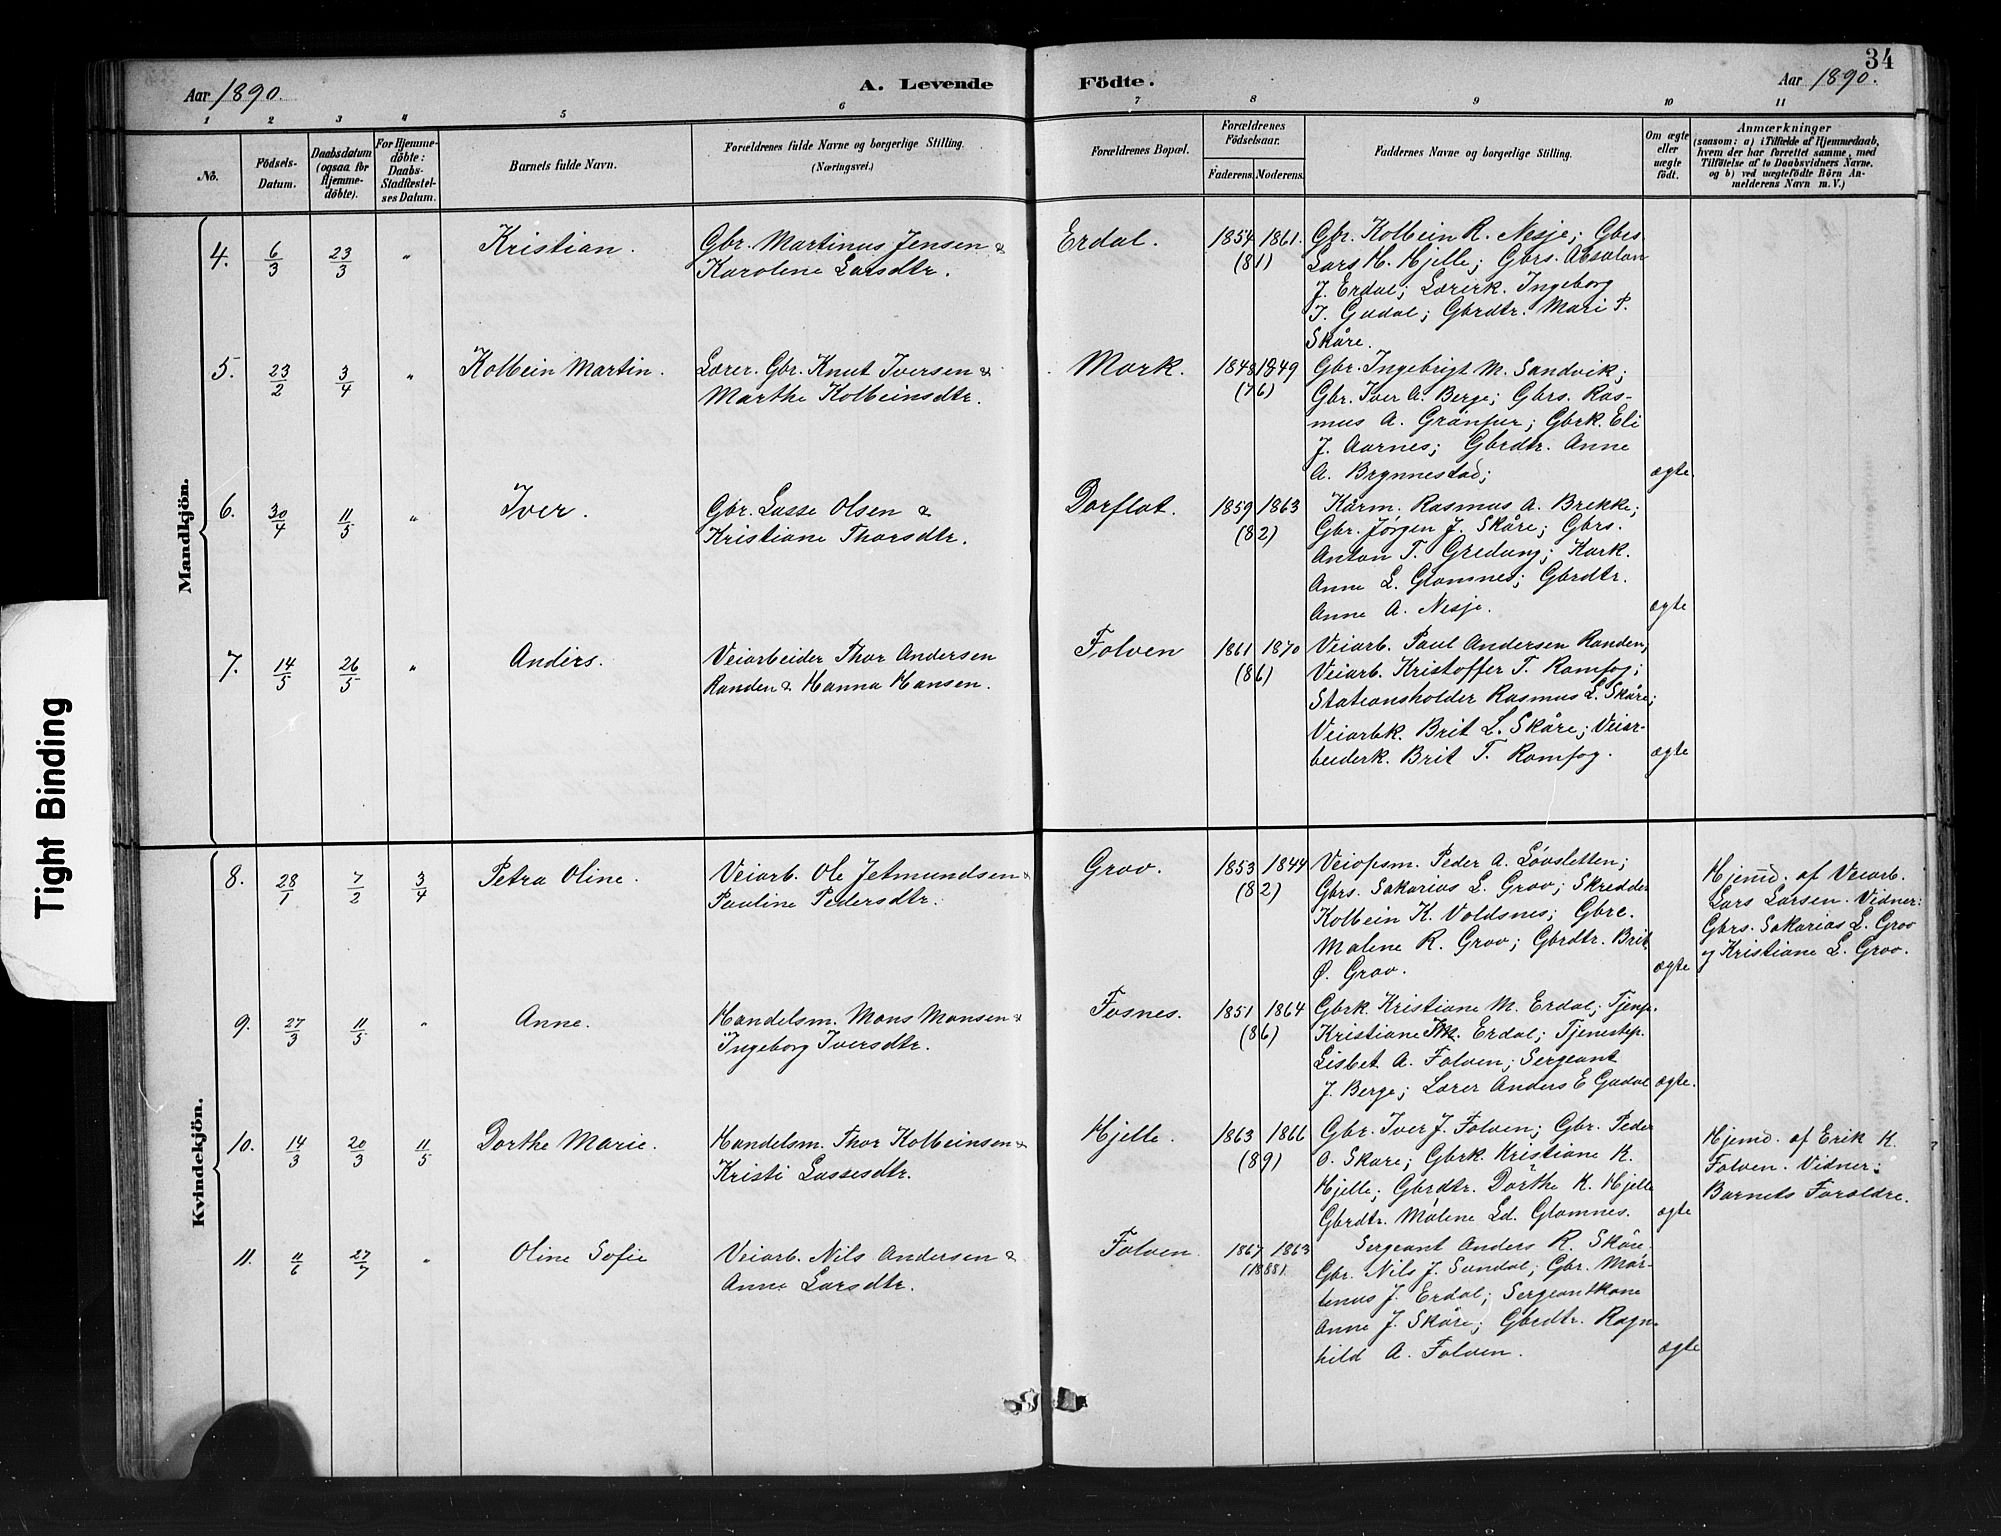 34
Aar 1890. A. Levende Födte. Aar 1890.
1 2 3 4 5 6 7 8 9 10 11
No.
Födsels-
Datum.
Daabsdatum
(ogsaa for
Hjemme-
döbte).
For Hjemme-
döbte:
Daabs-
Stadfæstel-
ses Datum.
Barnets fulde Navn.
Forældrenes fulde Navne og borgerlige Stilling.
(Næringsvei.)
Forældrenes Bopæl.
Forældrenes
Födselsaar.
Faderens. Moderens.
Faddernes Navne og borgerlige Stilling.
Om ægte
eller
uægte
födt.
Anmærkninger
(saasom: a) i Tilfælde af Hjemmedaab,
hvem der har forrettet samme, med
Tilföielse af to Daabsvidners Navne,
og b) ved uægtefödte Börn An-
melderens Navn m. V.)
Mandkjön.
4. 6/3 23/3 " Kristian.
Gbr. Martinus Jensen &
Karolene Larsdtr.
Erdal. 1854 1861.
(81)
Gbr. Kolbein R. Nesje; Gbrs.
Lars H. Hjelle; Gbrs. Absalon
J. Erdal; Lærerk. Ingeborg
I. Gudal; Gbrdtr. Mari P.
Skåre.
5. 23/2 3/4 " Kolbein Martin.
Lærer. Gbr. Knut Iversen &
Marthe Kolbeinsdtr.
Mark. 1848 1849
(76)
Gbr. Ingebrigt M. Sandvik;
Gbr. Iver A. Berge; Gbrs. Ras-
mus A. Grönfur; Gbrk. Eli
J. Aarnes; Gbrdtr. Anne
A. Brynnestad; ægte
6. 30/4 11/5 " Iver.
Gbr. Lasse Olsen &
Kristiane Thorsdtr.
Dorflat. 1859 1863
(82)
Kårm. Rasmus A. Brekke;
Gbr. Jørgen J. Skåre; Gbrs.
Anton T. Gredung; Kark.
Anne L. Glomnes; Gbrdtr.
Anne A. Nesje. ægte
7. 14/5 26/5 " Anders.
Veiarbeider Thor Andersen
Randen & Hanna Hansen.
Folven 1861 1870
(86)
Veiarb. Paul Andersen Randen,
Veiarb. Kristoffer T. Romfog;
Stationsholder Rasmus L. Skåre;
Veiarbk. Brit L. Skåre; Veiar-
beiderk. Brit T. Romfog. ægte
Kvindekjön.
8. 28/1 7/2 3/4 Petra Oline.
Veiarb. Ole Jetmundsen &
Pauline Pedersdtr.
Grov. 1853 1844
(82)
Veiopsm. Peder A. Lövsletten;
Gbrs. Sakarias L. Grov; Skredder
Kolbein K. Voldsnes; Gbre.
Malene R. Grov; Gbrdtr. Brit
Ø. Grov. ægte
Hjemd. af Veiarb.
Lars Larsen. Vidner:
Gbrs. Sakarias L. Grov
og Kristiane L. Grov.
9. 27/3 11/5 " Anne.
Handelsm. Mons Monsen &
Ingeborg Iversdtr.
Fosnes. 1851 1864
(86)
Gbrk. Kristiane M. Erdal; Tjenp.
Kristiane M. Erdal; Tjenestep.
Lisbet A. Folven; Sergeant
J. Berge; Lærer Anders E Gudal ægte.
10. 14/3 20/3 11/5 Dorthe Marie.
Handelsm. Thor Kolbeinsen &
Kristi Lassesdtr.
Hjelle. 1863 1866
(89)
Gbr. Iver J. Folven; Gbr. Peder
O. Skare; Gbrk. Kristiane K.
Hjelle; Gbrdtr. Dorthe K. Hjelle
Gbrdtr. Malene Ld. Glomnes. ægte
Hjemd. af Erik K.
Folven. Vidner:
Barnets Forældre.
11. 11/6 27/7 " Oline Sofie
Veiarb. Nils Andersen &
Anne Larsdtr.
Folven. 1867 1863
(1888)
Sergeant Anders R. Skåre.
Gbr. Nils J. Sundal; Gbr. Mar-
tenus J. Erdal; Sergeantkone
Anne J. Skåre; Gbrdtr. Ragn-
hild A. Folven. ægte
Tight Binding